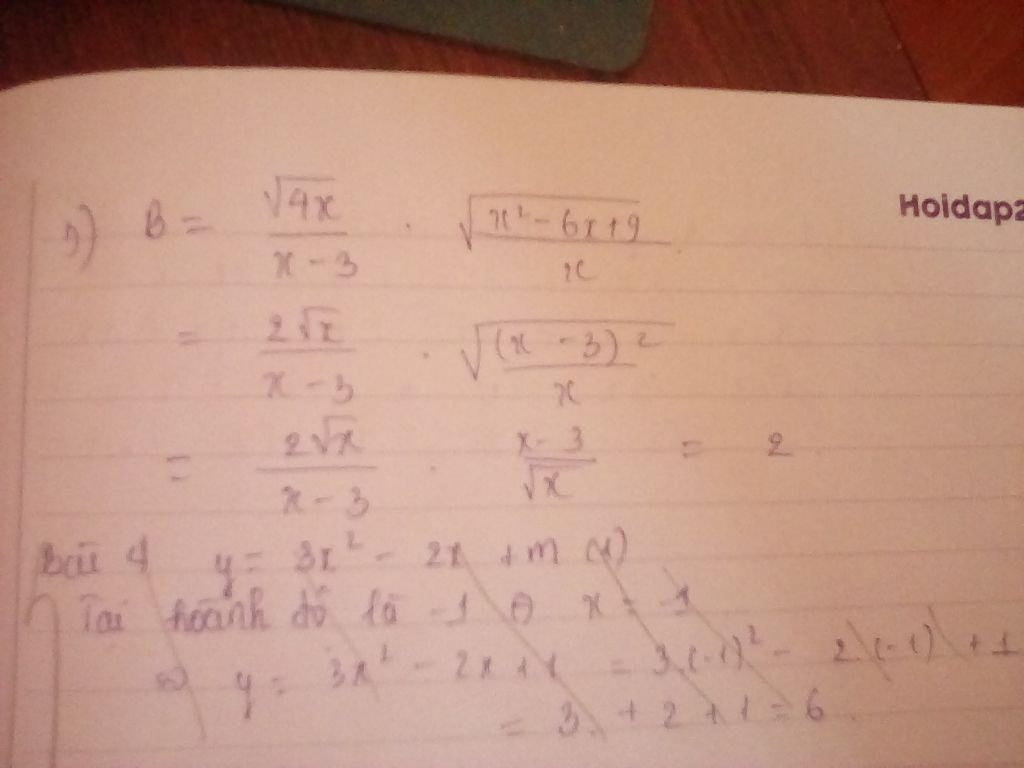 Hoidap2
b) B = √4x / x - 3 . √(x² - 6x + 9 / x)
= 2√x / x - 3 . √((x - 3)² / x)
= 2√x / x - 3 . x - 3 / √x = 2
Bài 4 y = 3x² - 2x + m (1)
Tại hoành độ là -1 x = -1
y = 3x² - 2x + 1 = 3.(-1)² - 2.(-1) + 1
= 3 + 2 + 1 = 6